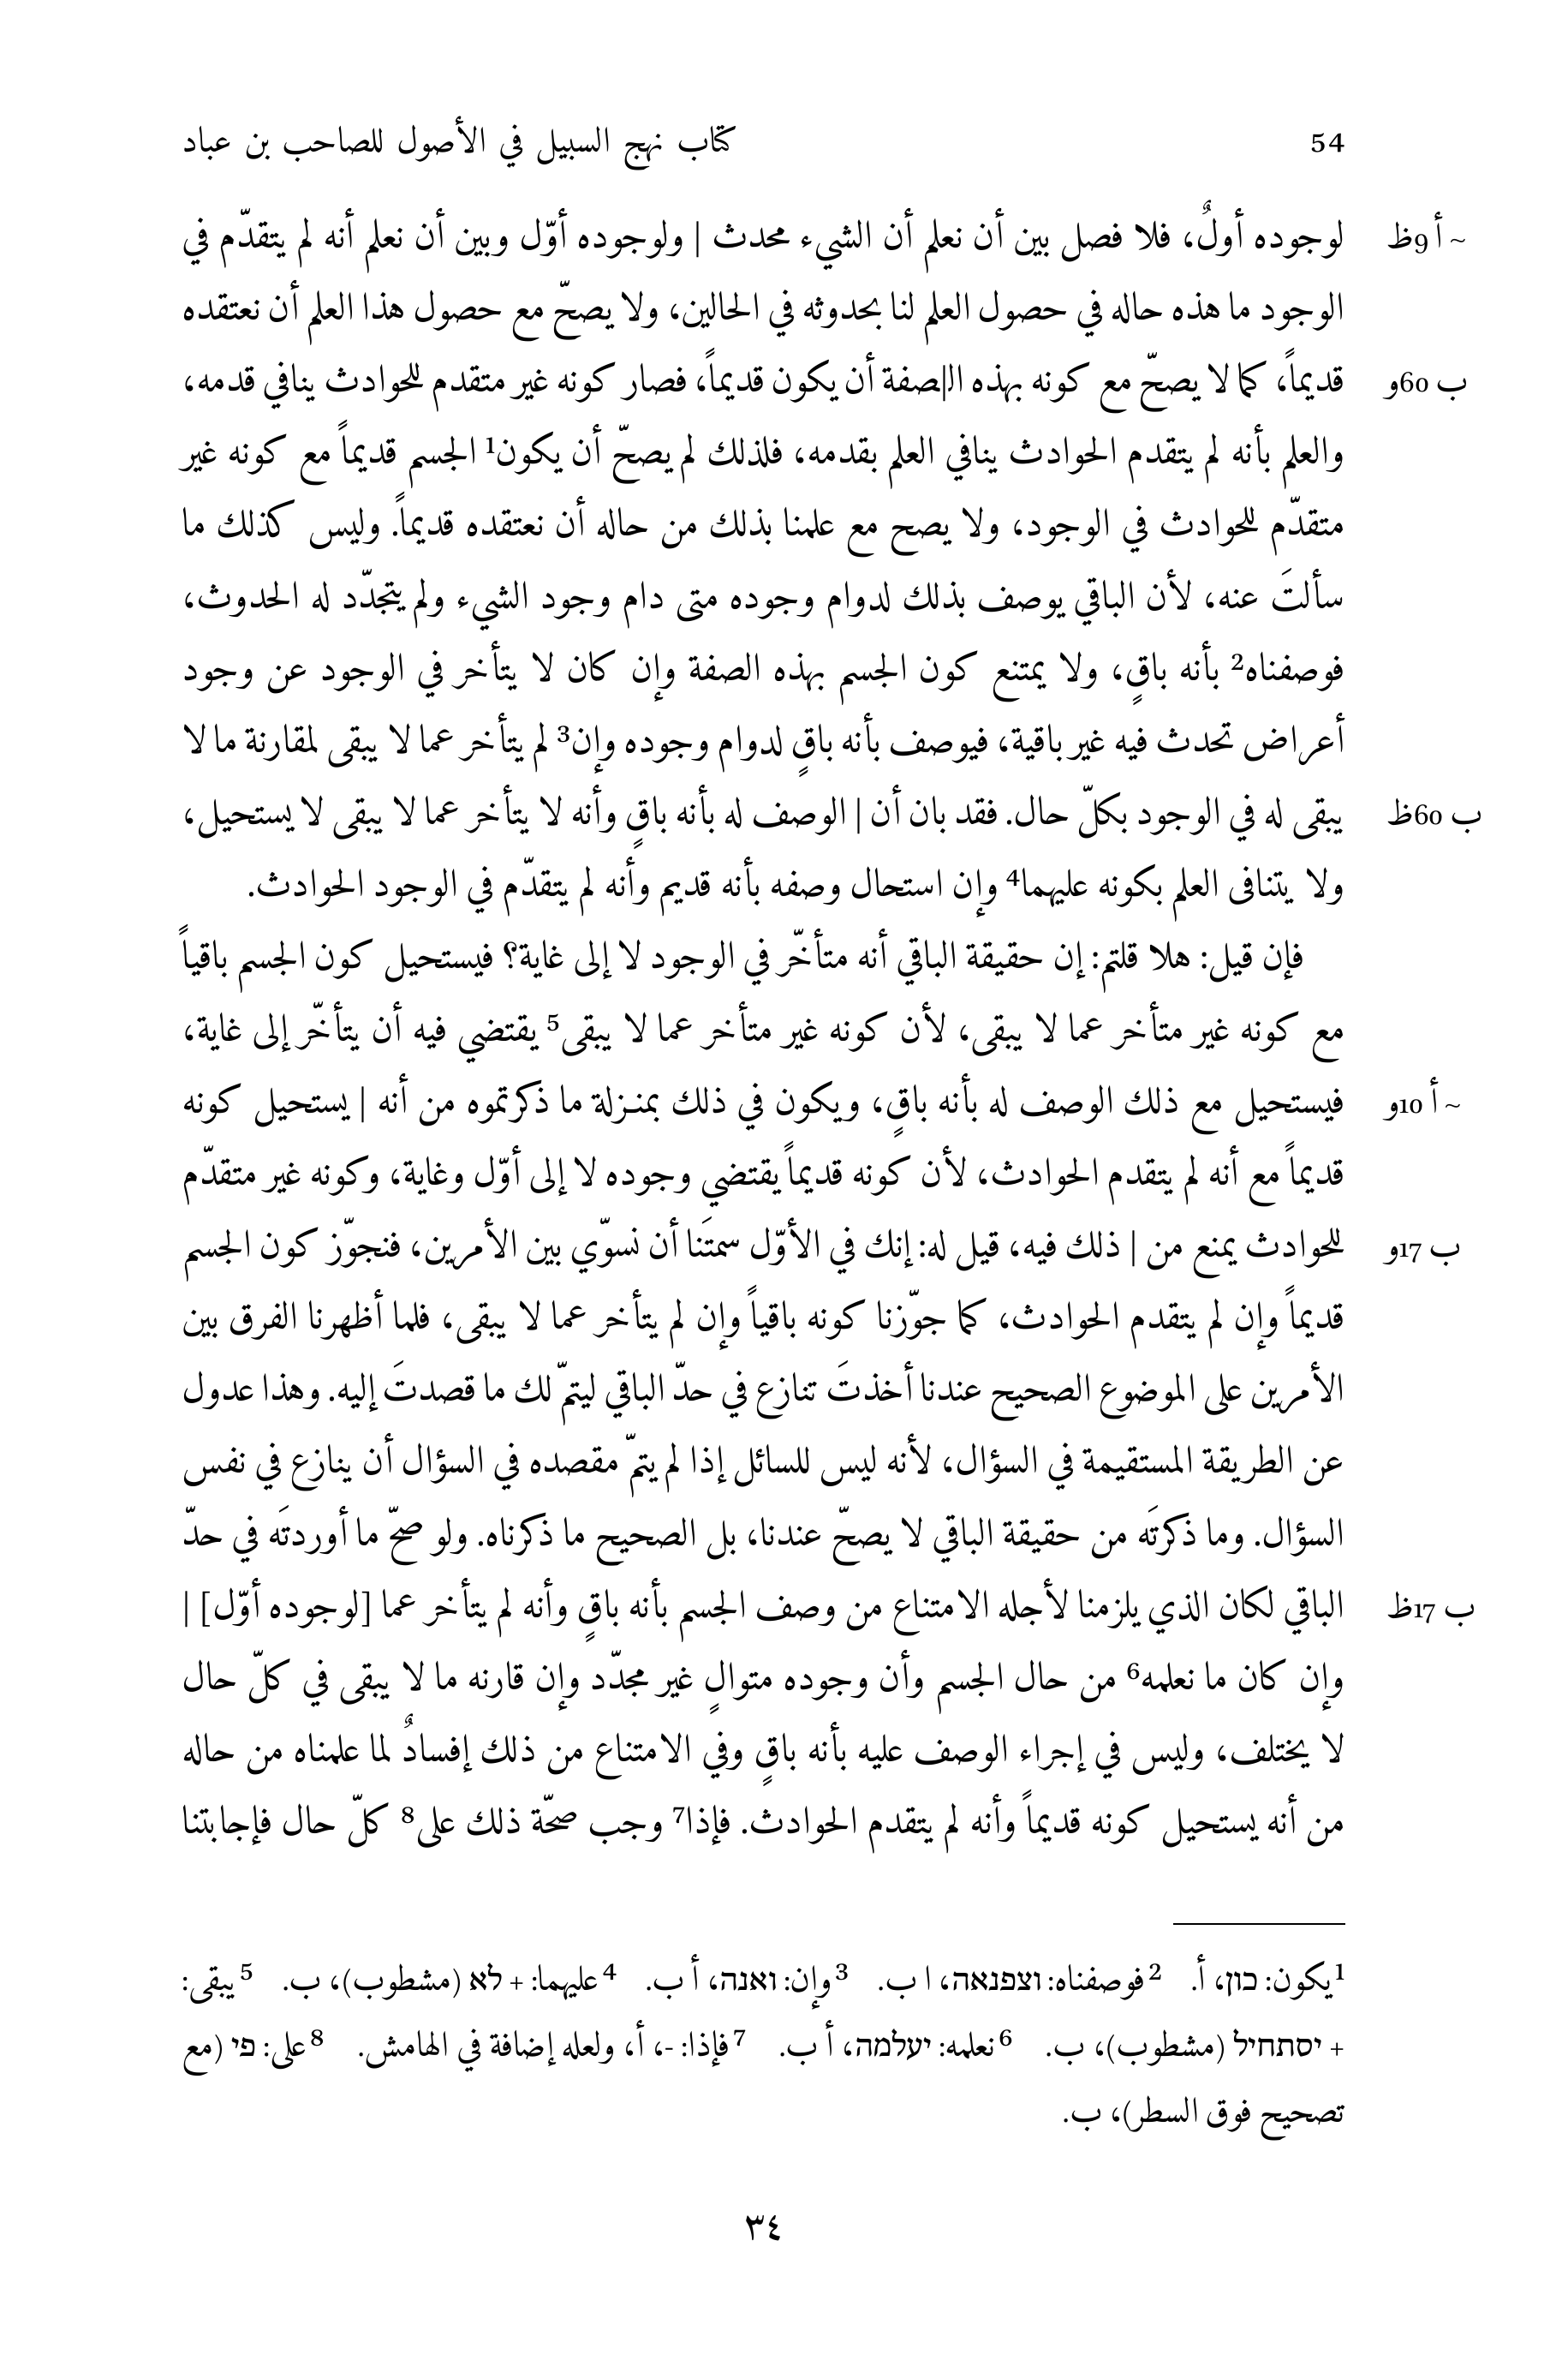 54 كتاب نهج السبيل في الأصول للصاحب بن عباد
~ أ 9ظ لوجوده أولٌ، فلا فصل بين أن نعلم أن الشيء محدث | ولوجوده أوّل وبين أن نعلم أنه لم يتقدّم في
الوجود ما هذه حاله في حصول العلم لنا بحدوثه في الحالين، ولا يصحّ مع حصول هذا العلم أن نعتقده
ب 60و قديماً، كما لا يصحّ مع كونه بهذه ال|صفة أن يكون قديماً، فصار كونه غير متقدم للحوادث ينافي قدمه،
والعلم بأنه لم يتقدم الحوادث ينافي العلم بقدمه، فلذلك لم يصحّ أن يكون1 الجسم قديماً مع كونه غير
متقدّم للحوادث في الوجود، ولا يصح مع علمنا بذلك من حاله أن نعتقده قديماً. وليس كذلك ما
سألتَ عنه، لأن الباقي يوصف بذلك لدوام وجوده متى دام وجود الشيء ولم يتجدّد له الحدوث،
فوصفناه2 بأنه باقٍ، ولا يمتنع كون الجسم بهذه الصفة وإن كان لا يتأخر في الوجود عن وجود
أعراض تحدث فيه غير باقية، فيوصف بأنه باقٍ لدوام وجوده وإن3 لم يتأخر عما لا يبقى لمقارنة ما لا
ب 60ظ يبقى له في الوجود بكلّ حال. فقد بان أن | الوصف له بأنه باقٍ وأنه لا يتأخر عما لا يبقى لا يستحيل،
ولا يتنافى العلم بكونه عليهما4 وإن استحال وصفه بأنه قديم وأنه لم يتقدّم في الوجود الحوادث.
فإن قيل: هلا قلتم: إن حقيقة الباقي أنه متأخّر في الوجود لا إلى غاية؟ فيستحيل كون الجسم باقياً
مع كونه غير متأخر عما لا يبقى، لأن كونه غير متأخر عما لا يبقى5 يقتضي فيه أن يتأخّر إلى غاية،
~ أ 10و فيستحيل مع ذلك الوصف له بأنه باقٍ، ويكون في ذلك بمنـزلة ما ذكرتموه من أنه | يستحيل كونه
قديماً مع أنه لم يتقدم الحوادث، لأن كونه قديماً يقتضي وجوده لا إلى أوّل وغاية، وكونه غير متقدّم
ب 17و للحوادث يمنع من | ذلك فيه، قيل له: إنك في الأوّل سمتَنا أن نسوّي بين الأمرين، فنجوّز كون الجسم
قديماً وإن لم يتقدم الحوادث، كما جوّزنا كونه باقياً وإن لم يتأخر عما لا يبقى، فلما أظهرنا الفرق بين
الأمرين على الموضوع الصحيح عندنا أخذتَ تنازع في حدّ الباقي ليتمّ لك ما قصدتَ إليه. وهذا عدول
عن الطريقة المستقيمة في السؤال، لأنه ليس للسائل إذا لم يتمّ مقصده في السؤال أن ينازع في نفس
السؤال. وما ذكرتَه من حقيقة الباقي لا يصحّ عندنا، بل الصحيح ما ذكرناه. ولو صحّ ما أوردتَه في حدّ
ب 17ظ الباقي لكان الذي يلزمنا لأجله الامتناع من وصف الجسم بأنه باقٍ وأنه لم يتأخر عما [لوجوده أوّل] |
وإن كان ما نعلمه6 من حال الجسم وأن وجوده متوالٍ غير مجدّد وإن قارنه ما لا يبقى في كلّ حال
لا يختلف، وليس في إجراء الوصف عليه بأنه باقٍ وفي الامتناع من ذلك إفسادٌ لما علمناه من حاله
من أنه يستحيل كونه قديماً وأنه لم يتقدم الحوادث. فإذا7 وجب صحّة ذلك على8 كلّ حال فإجابتنا
1 يكون: כון، أ. 2 فوصفناه: וצפנאה، ا ب. 3 وإن: ואנה، أ ب. 4 عليهما: + לא (مشطوب)، ب. 5 يبقى:
+ יסתחיל (مشطوب)، ب. 6 نعلمه: יעלמה، أ ب. 7 فإذا: -، أ، ولعله إضافة في الهامش. 8 على: פי (مع
تصحيح فوق السطر)، ب.
٣٤